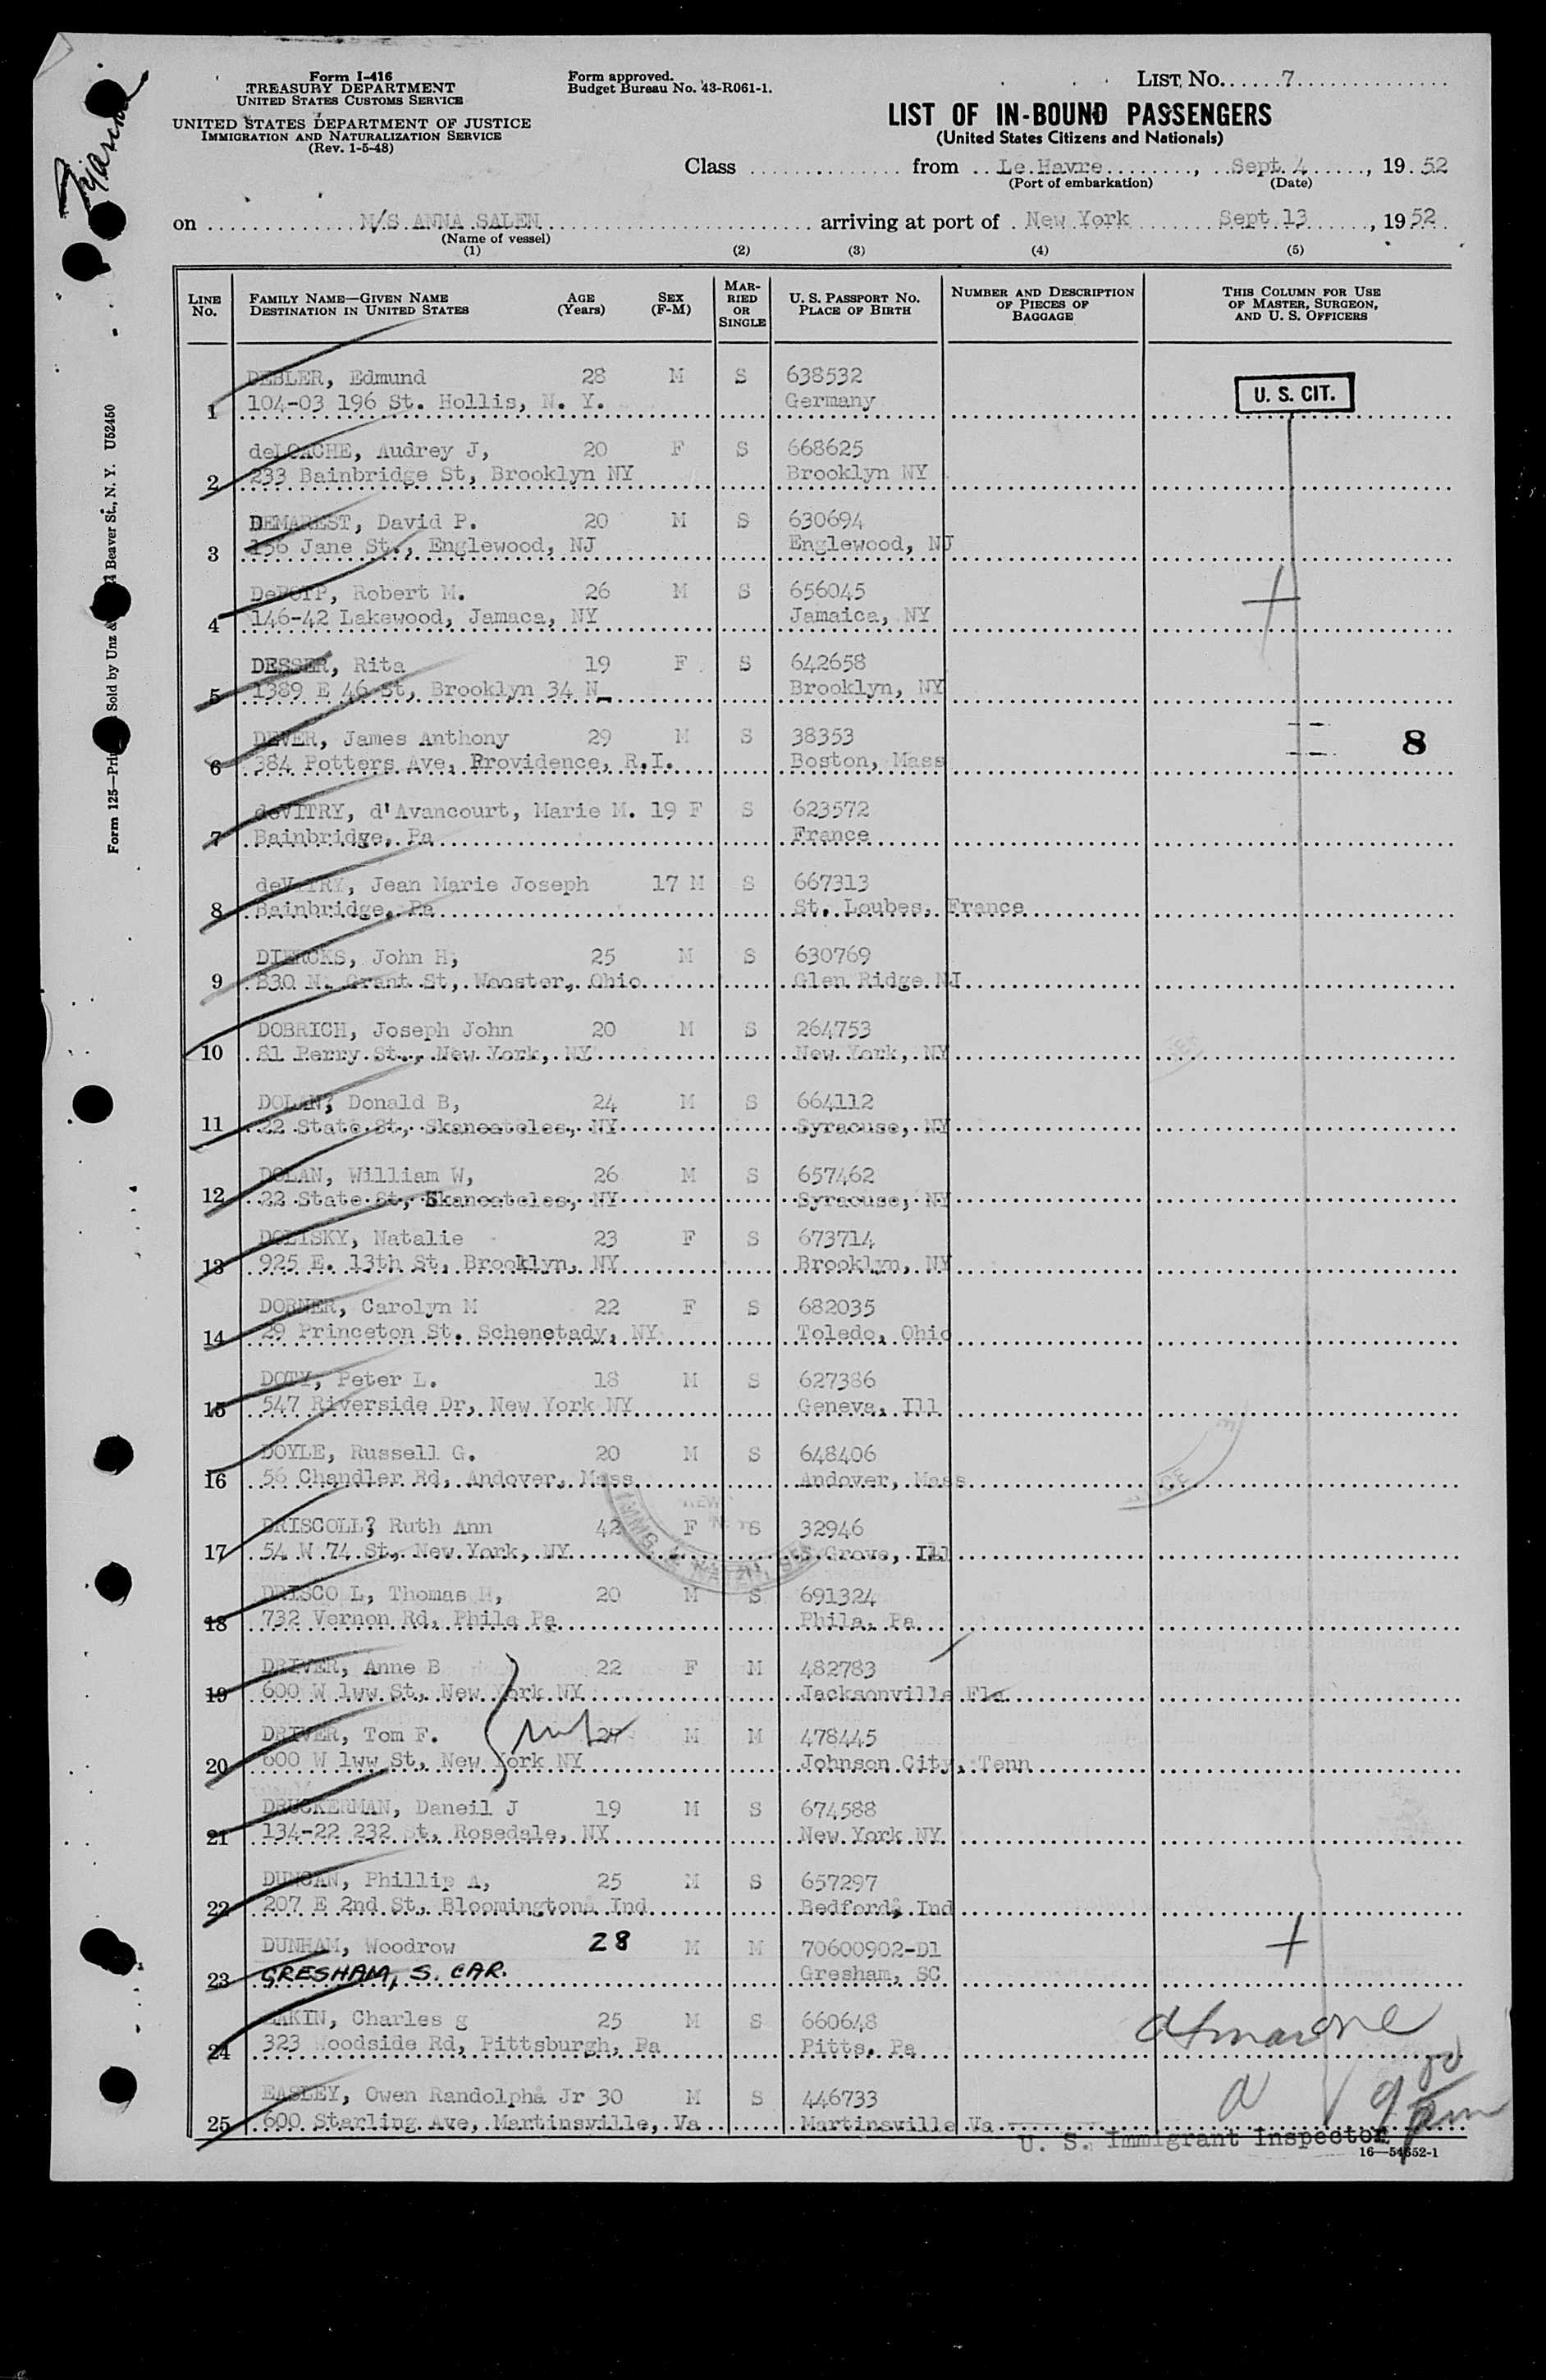 Form I-416
TREASURY DEPARTMENT
UNITED STATES CUSTOMS SERVICE
UNITED STATES DEPARTMENT OF JUSTICE
IMMIGRATION AND NATURALIZATION SERVICE
(Rev. 1-5-48)
Form approved.
Budget Bureau No. 43-R061-1.
LIST No. 7
LIST OF IN-BOUND PASSENGERS
(United States Citizens and Nationals)
Class from Le Havre, Sept. 4, 1952
(Port of embarkation) (Date)
on M/S ANNA SALEN arriving at port of New York Sept 13, 1952
(Name of vessel)
(1) (2) (3) (4) (5)
LINE No. FAMILY NAME—GIVEN NAME DESTINATION IN UNITED STATES AGE (Years) SEX (F-M) MARRIED OR SINGLE U. S. PASSPORT No. PLACE OF BIRTH NUMBER AND DESCRIPTION OF PIECES OF BAGGAGE THIS COLUMN FOR USE OF MASTER, SURGEON, AND U. S. OFFICERS
DEBLER, Edmund 28 M S 638532
1 104-03 196 St. Hollis, N. Y. Germany U. S. CIT.
deLOACHE, Audrey J, 20 F S 668625
2 233 Bainbridge St, Brooklyn NY Brooklyn NY
DEMAREST, David P. 20 M S 630694
3 156 Jane St., Englewood, NJ Englewood, NJ
Robert M. 26 M S 656045
4 146-42 Lakewood, Jamaca, NY Jamaica, NY
DESSER, Rita 19 F S 642658
5 1389 E 46 St, Brooklyn 34 N_ Brooklyn, NY
DEVER, James Anthony 29 M S 38353
6 384 Potters Ave, Providence, R.I. Boston, Mass 8
deVITRY, d'Avancourt, Marie M. 19 F S 623572
7 Bainbridge, Pa France
deVITRY, Jean Marie Joseph 17 M S 667313
8 Bainbridge, Pa St. Loubes, France
DIERCKS, John H, 25 M S 630769
9 830 N. Grant St, Wooster, Ohio Glen Ridge NJ
DOBRICH, Joseph John 20 M S 264753
10 81 Perry St., New York, NY New York, NY
DOLAN, Donald B, 24 M S 664112
11 22 State St, Skaneateles, NY Syracuse, NY
DOLAN, William W, 26 M S 657462
12 22 State St, Skaneateles, NY Syracuse, NY
DOLISKY, Natalie 23 F S 673714
13 925 E. 13th St, Brooklyn, NY Brooklyn, NY
DORNER, Carolyn M 22 F S 682035
14 29 Princeton St. Schenctady, NY Toledo, Ohio
DOTY, Peter L. 18 M S 627386
15 547 Riverside Dr, New York NY Geneva, Ill
DOYLE, Russell G. 20 M S 648406
16 56 Chandler Rd, Andover, Mass Andover, Mass
DRISCOLL? Ruth Ann 42 F S 32946
17 54 W 74 St, New York, NY Grove, Ill
DRISCO L, Thomas H, 20 M S 691324
18 732 Vernon Rd, Phila Pa Phila, Pa
DRIVER, Anne B 22 F M 482783
19 600 W lww St, New York NY Jacksonville Fla
DRIVER, Tom F. 27 M M 478445
20 600 W lww St, New York NY Johnson City, Tenn
DRUCKERMAN, Daneil J 19 M S 674588
21 134-22 232 St, Rosedale, NY New York NY
DUNCAN, Phillip A, 25 M S 657297
22 207 E 2nd St, Bloomingtonå Ind Bedfordå, Ind
DUNHAM, Woodrow 28 M M 70600902-D1
23 GRESHAM, S. CAR. Gresham, SC
EAKIN, Charles g 25 M S 660648
24 323 Woodside Rd, Pittsburgh, Pa Pitts. Pa
EASLEY, Owen Randolphå Jr 30 M S 446733
25 600 Starling Ave, Martinsville, Va Martinsville Va
U. S. Immigrant Inspector
16—54652-1
Beaver St., N. Y. U52450
Sold by Unz &
Form 125—